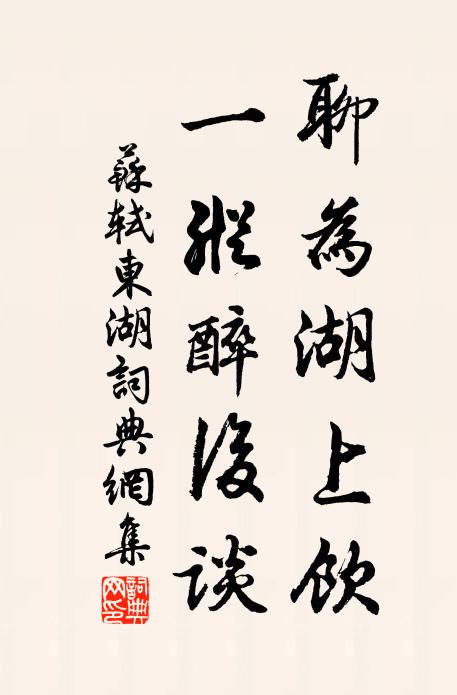 聊為湖上飲
一縱醉後談
蘇軾東湖詞典網集
詞典网印